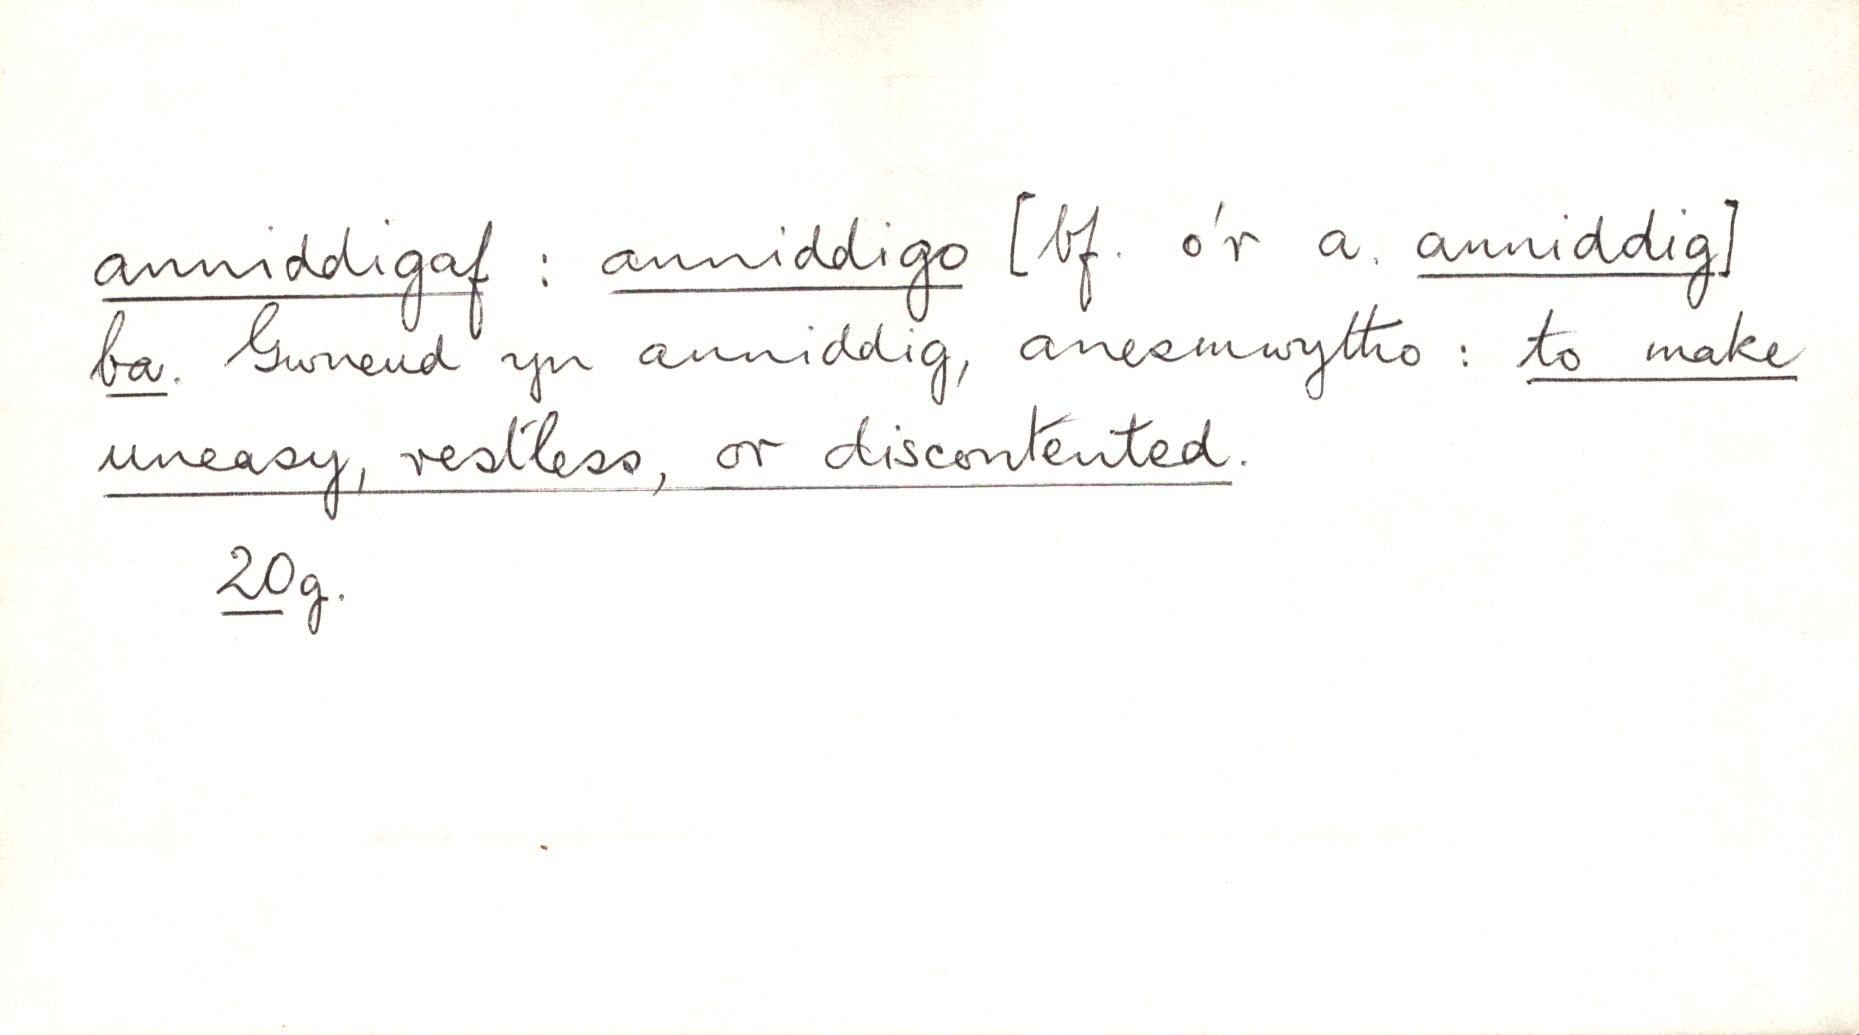 anniddigaf : anniddigo [bf. o'r a. anniddig]
ba. Gwneud yn anniddig, anesmwytho : to make
uneasy, restless, or discontented.
20g.